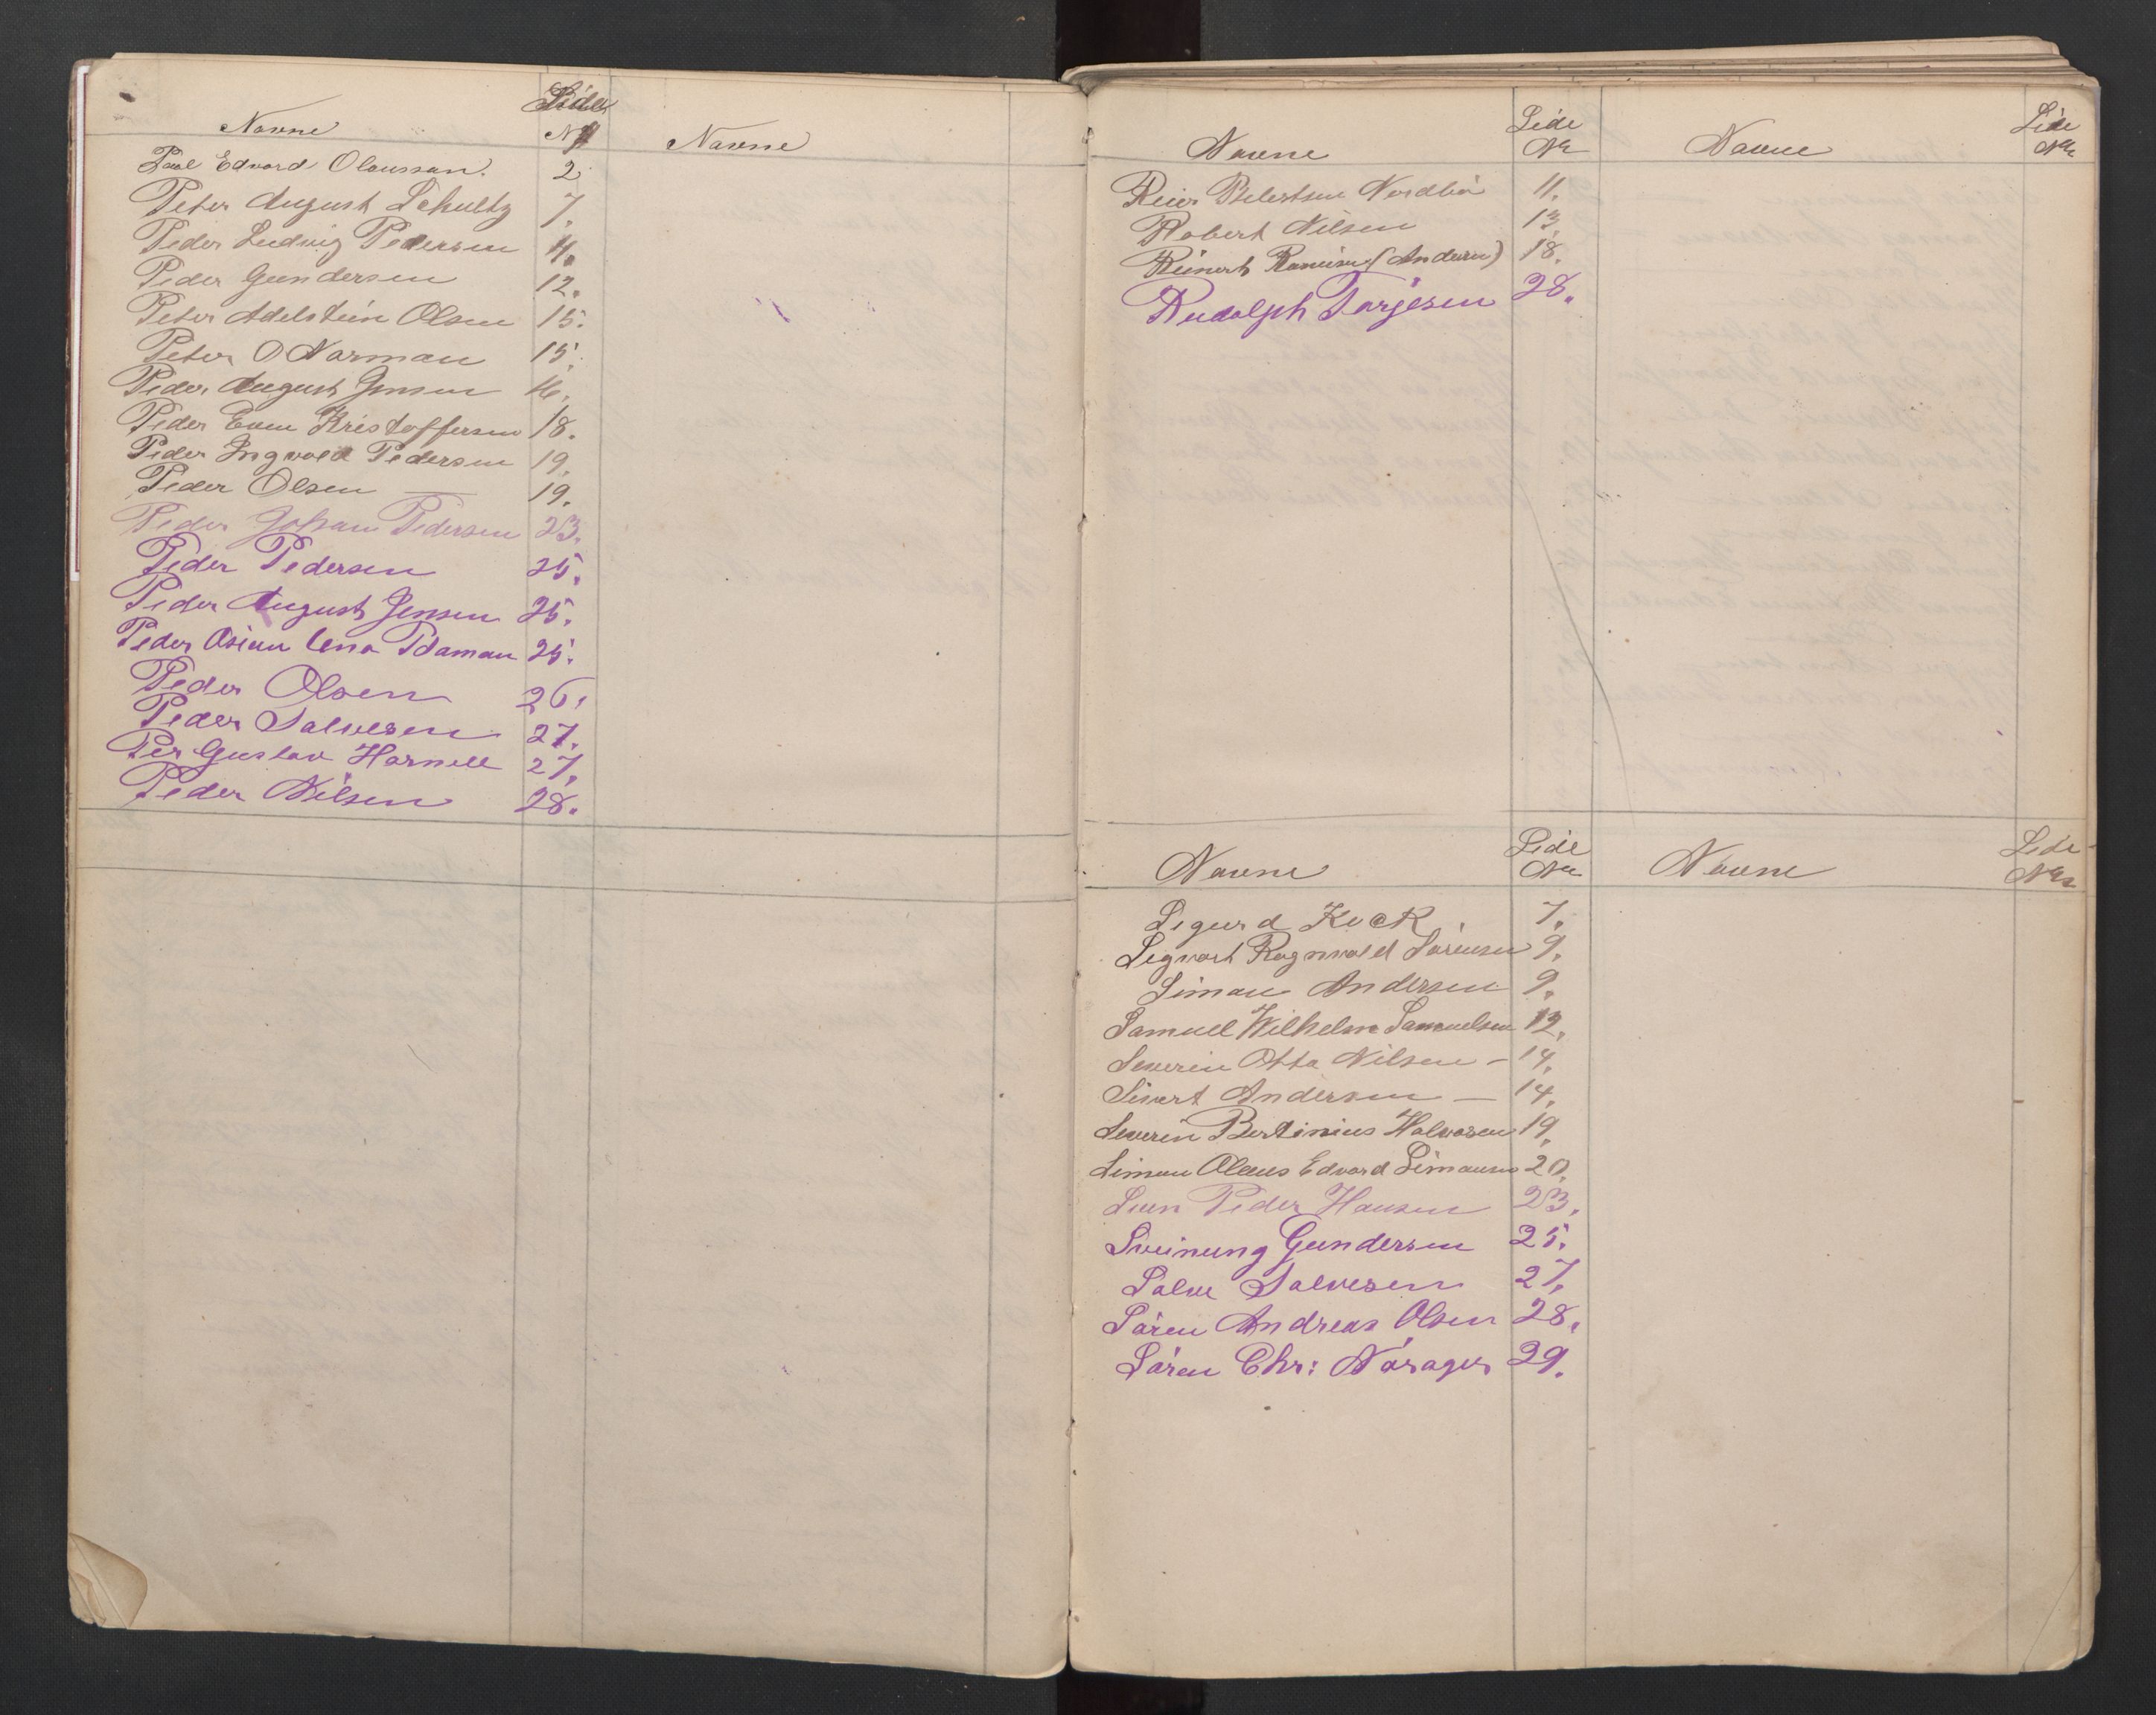 Navne
Side
Nr
Navne
Paul Edvard Olaussan. 2
Peter August Schultz 7.
Peder Ludvig Pedersen 11.
Peder Gundersen 12.
Peter Adelstein Olsen 15.
Peter O Norman 15.
Peder August Jensen 16.
Peder Even Kristoffersen 18.
Peder Ingvald Pedersen 19.
Peder Olsen — 19.
Peder Johan Pedersen 23.
Peder Pedersen 25.
Peder August Jensen 25.
Peder 25.
Peder Olsen 26.
Peder Salvesen 27.
Per Gustav Harnell 27.
Peder Nilsen 28.
Navne
Side
Nr
Navne
Side
Nr
Reier Nordbö 11.
Robert Nilsen 13.
Reinert (Andersen) 18.
Rudolph Torjesen 28.
Navne
Side
Nr
Navne
Side
Nr
Sigurd Kock. 7.
Sigvart Ragnvald Sörensen 9.
Siman Andersen 9.
Samuel Wilhelm Samuelsen 12.
Severin Otto Nilsen – 14.
Sivert Andersen — 14.
Severin Bertinius Halvorsen 19.
Siman Olaus Edvard Simansen 20.
Sven Peder Hansen 23.
Sveinung Gundersen 25.
Salve Salvesen 27.
Sören Andreas Olsen 28.
Sören Chr: Nörager 29.